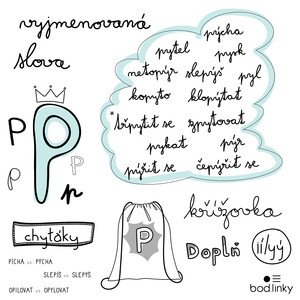 vyjmenovaná
slova
pýcha
pytel
pysk
netopýr
slepýš
pyl
kopyto
klopýtat
*třpytit se
zpytovat
pykat
pýr
pýřit se
čepýřit se
P
P
p
p
p
chytáky
PÍCHA vs. PÝCHA
SLEPÍŠ vs. SLEPÝŠ
OPILOVAT vs. OPYLOVAT
P
křížovka
Doplň
i/í,y,ý
bodlinky